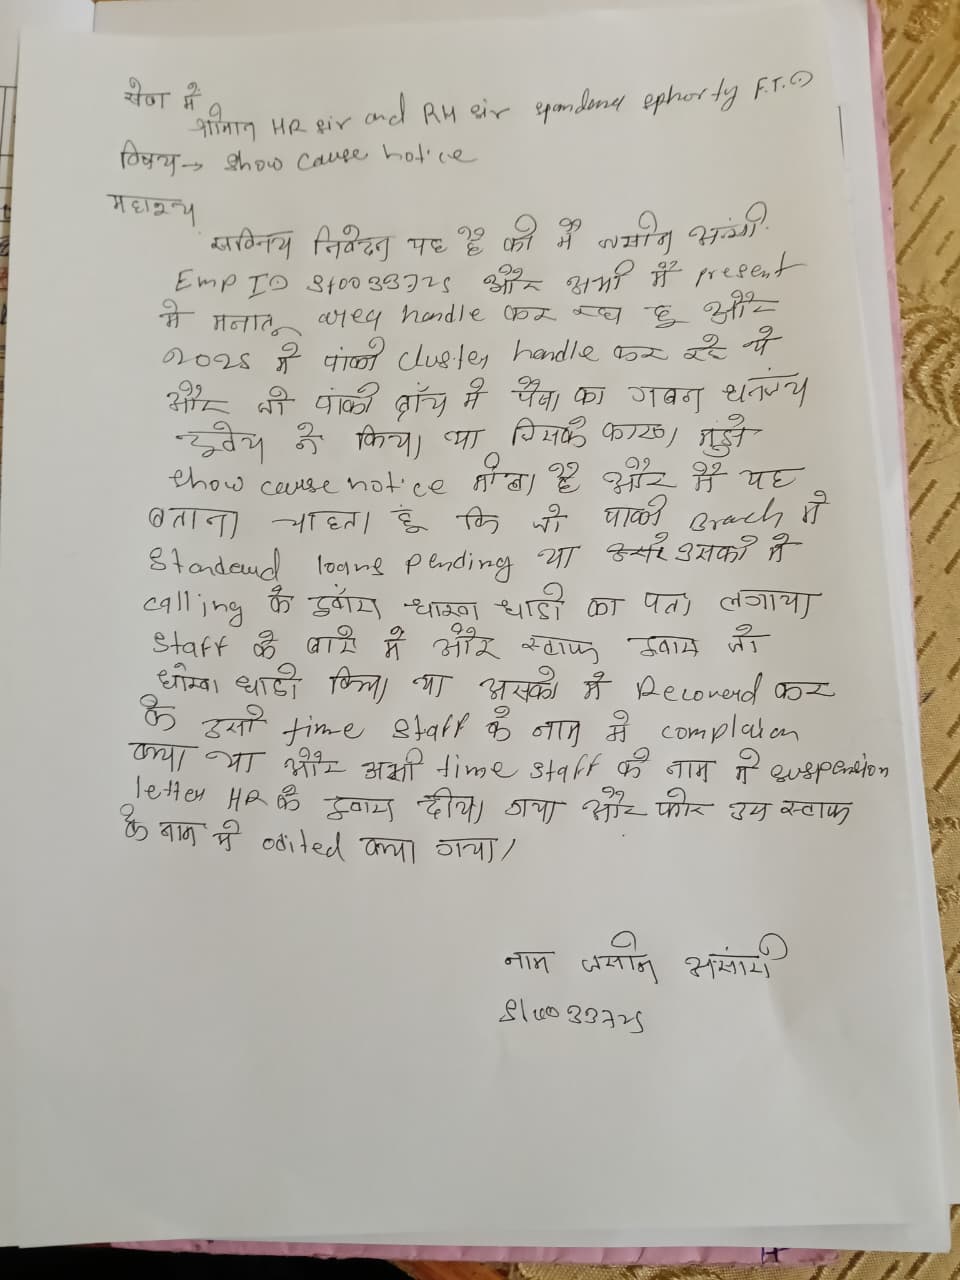 सेवा में
श्रीमान HR sir and RH sir spandana sphorty F.T.O
विषय → show cause notice
महाश्य
सविनय निवेदन यह है की मैं अंसारी
Emp ID S10033725 और अभी मैं present
मे मनातू area handle कर रहा हू और
2025 मे पांकी cluster handle कर रहे थे
और जो पांकी ब्रॉच मे पैसा का गबन धनंज्य
दुवेय ने किया था जिसके कारण मुझे
show cause notice मीला है और मैं यह
बताना चाहता हूं कि जो पाकी Brach मे
Standend loans pending था उसको मे
calling के द्वारा धोखा धाडी का पता लगाया
staff के बारे मे और स्टाफ द्वारा जो
धोखा धाडी किया था उसको मे Recoverd कर
के उसी time staff के नाम मे complaien
क्या था और उसी time staff के नाम मे suspension
letter HR के द्वारा दीया गया और फीर उस स्टाफ
के नाम मे odited क्या गया।
नाम अंसारी
S10033725